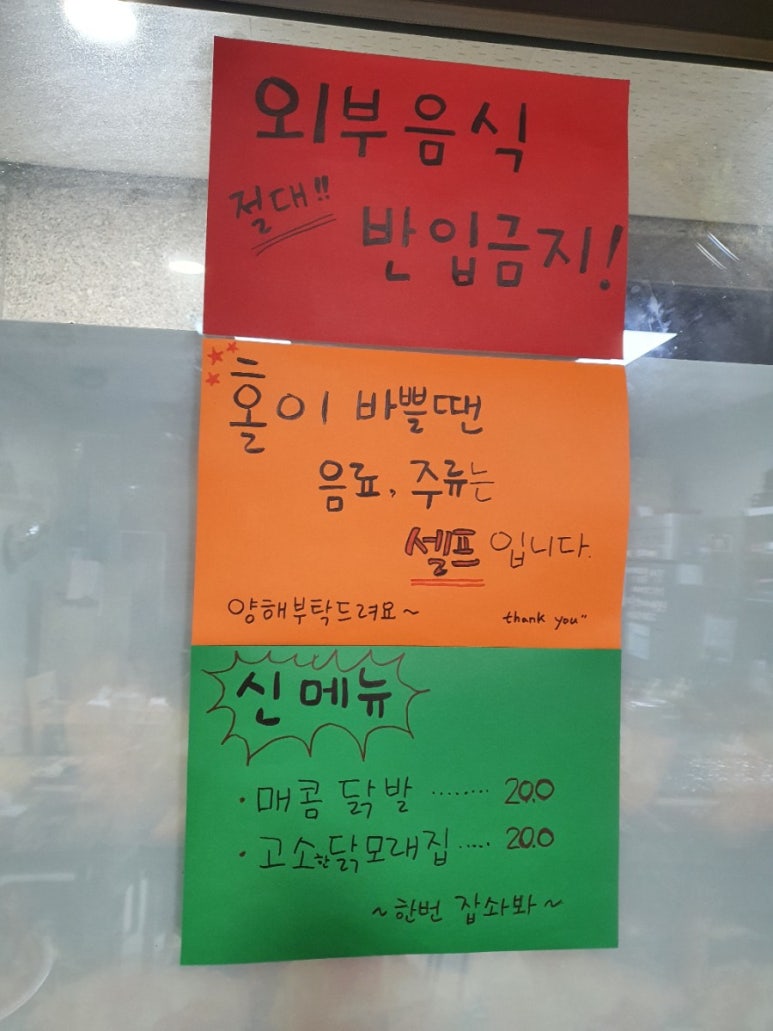 외부음식
절대!!
반입금지!
홀이 바쁠땐
음료, 주류는
셀프입니다.
양해부탁드려요~
thank you"
신메뉴
· 매콤 닭발 ········ 20.0
· 고소한닭모래집 ····· 20.0
~한번 잡솨봐~